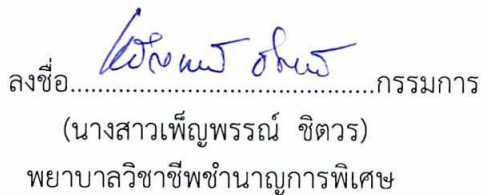 ลงชื่อ..........................................กรรมการ
(นางสาวเพ็ญพรรณ์ ชิตวร)
พยาบาลวิชาชีพชำนาญการพิเศษ